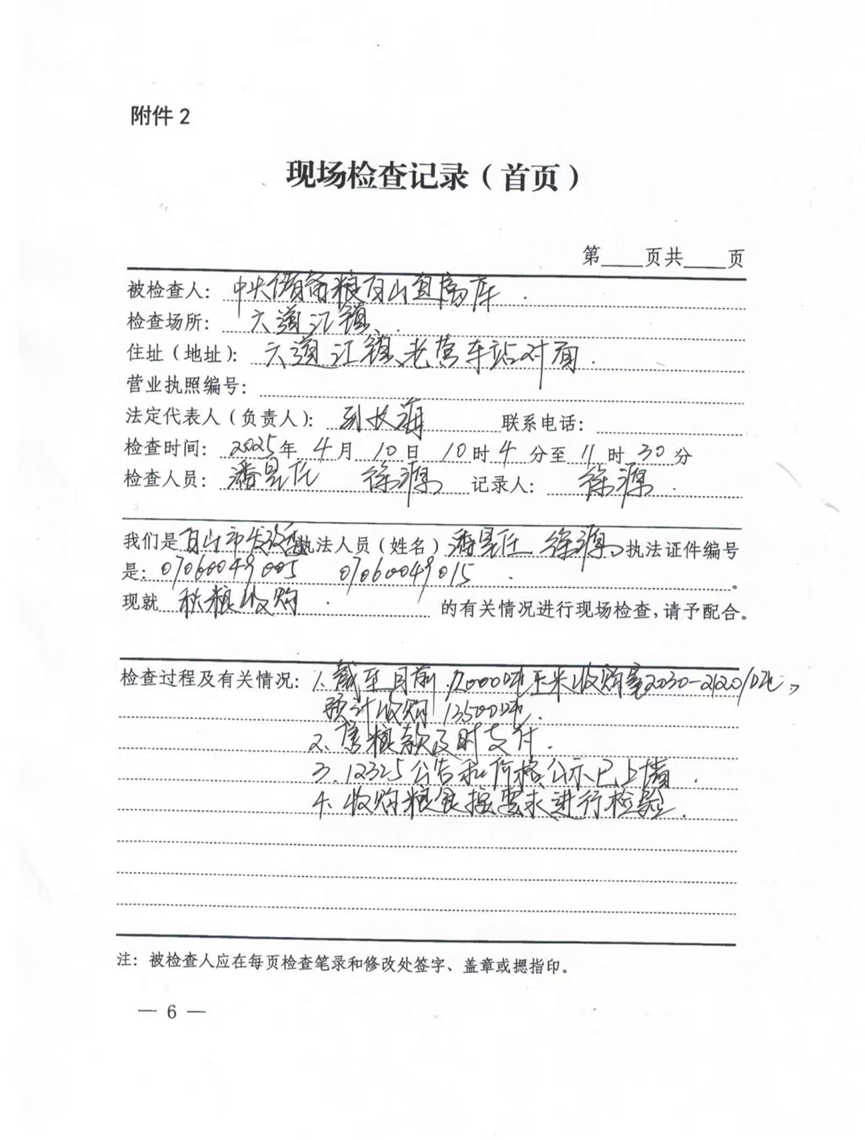 附件2
现场检查记录（首页）
第____页共____页
被检查人：中央储备粮白山直属库
检查场所：六道江镇
住址（地址）：六道江镇、老营车站对面
营业执照编号：
法定代表人（负责人）：刘长海 联系电话：
检查时间：2025年4月10日10时4分至11时30分
检查人员：潘昱任 徐源 记录人：徐源
我们是白山市发改委执法人员（姓名）潘昱任 徐源，执法证件编号
是：07060049005 07060049015。
现就 秋粮收购 的有关情况进行现场检查，请予配合。
检查过程及有关情况：1.截至目前，12000吨玉米收购 2030-2120/吨，
预计收购13500吨.
2.售粮款及时支付.
3.12325公告和价格公示已上墙.
4.收购粮食按要求进行检验.
注：被检查人应在每页检查笔录和修改处签字、盖章或摁指印。
— 6 —